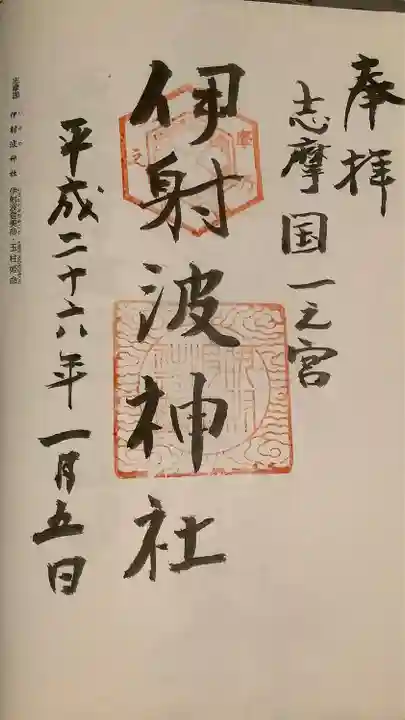 奉拝
志摩国一之宮
伊射波神社
平成二十六年一月五日
志摩国 伊射波神社